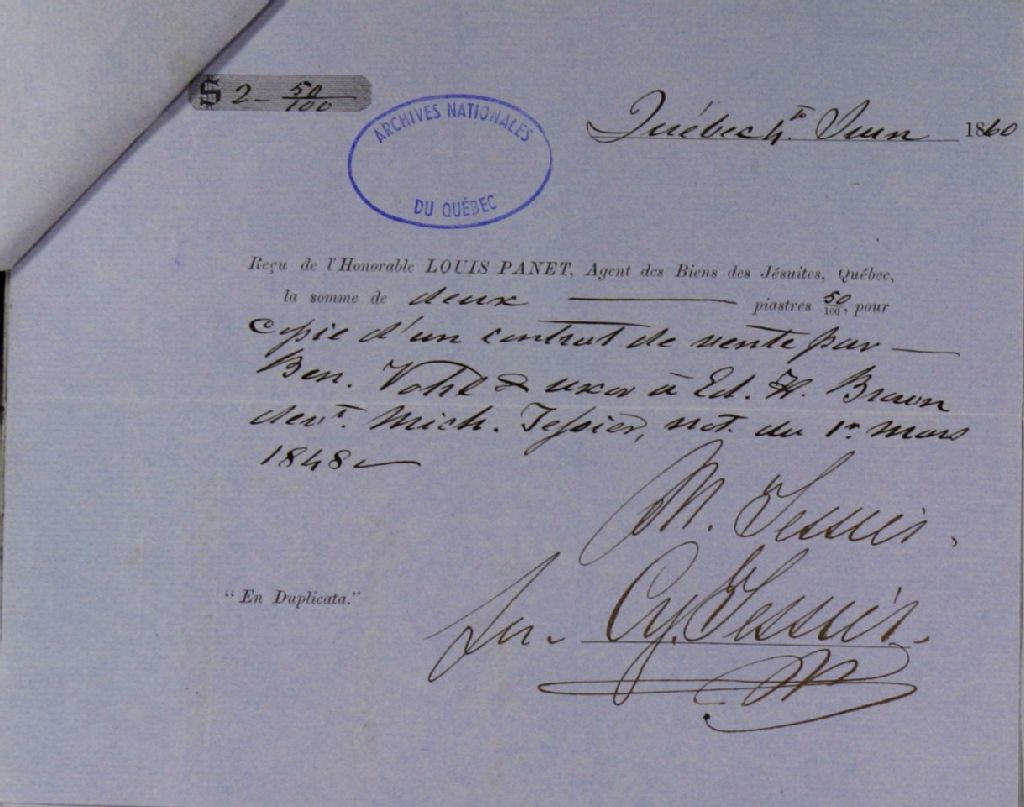 $ 2 - 50/100
ARCHIVES NATIONALES
DU QUÉBEC
Québec 4 Juin 1860
Reçu de l'Honorable LOUIS PANET, Agent des Biens des Jésuites, Québec,
la somme de deux — piastres 50/100, pour
Copie d'un contrat de vente par —
Ben. & uxor à Ed. H. Brown
devt. Mich. Tessier, not. du 1er mars
1848
M. Tessier.
Cy. Tessier.
"En Duplicata."